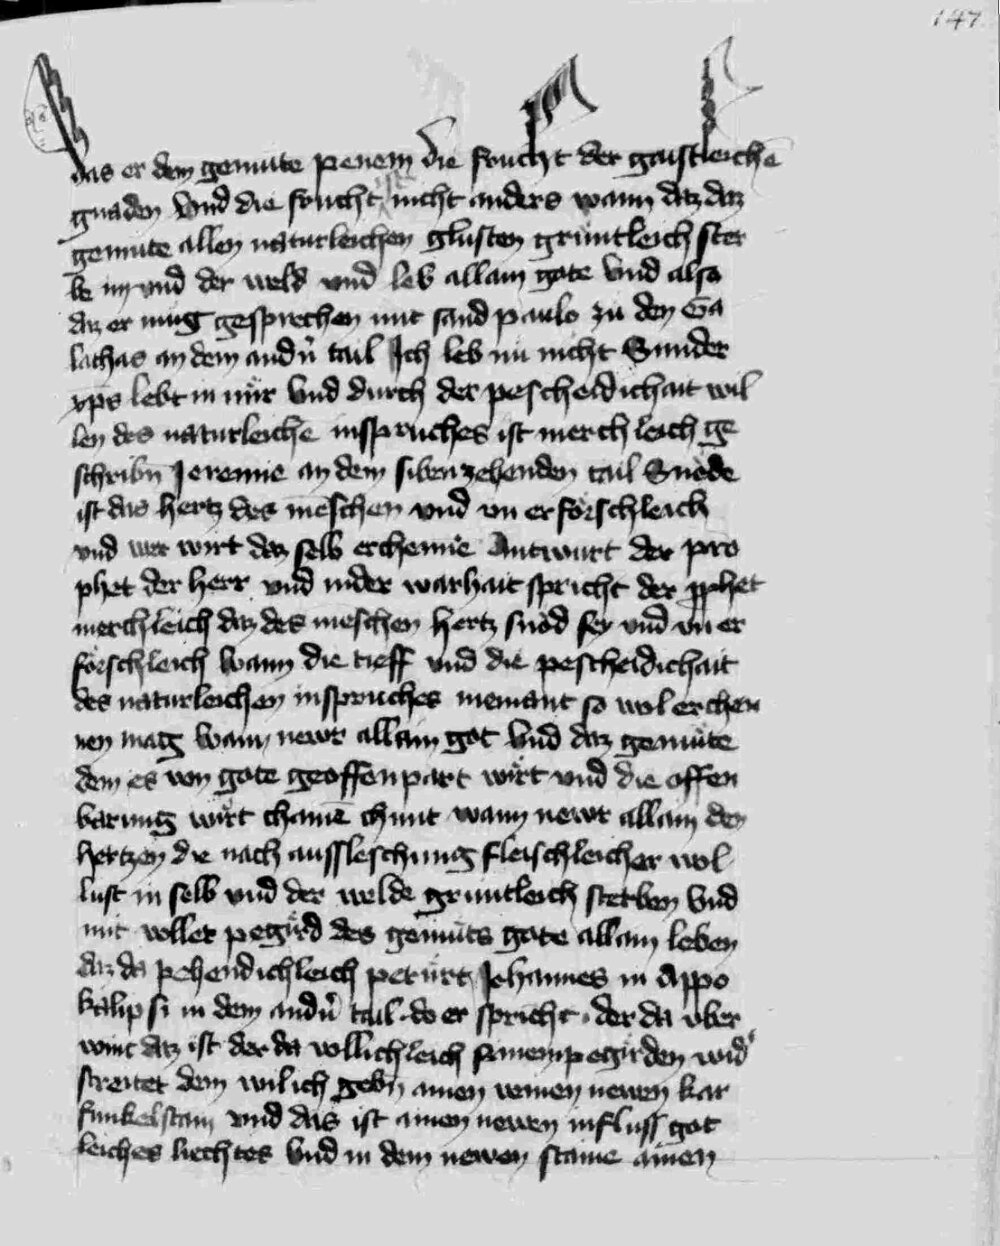 147
das er dem gemute penem die frucht der gaistleichē
gnaden vnd die frucht ist nicht anders wann daz daz
gemute allen naturleichen glusten gruntleich ster
be im vnd der weld vnd leb allain gote vnd also
daz er mug gesprechen mit sand paulo zu den Ga
lathas an dem andn̄ tail Ich leb nu nicht Sunder
xp̄s lebt in mir vnd durch der pescheidichait wil
len des naturleichē inspruches ist merchleich ge
schribn̄ Jeremie an dem sibenzehenden tail Snöde
ist das hertz des mēschen vnd vn erförschleich
vnd wer wirt daz selb erchenne Antwurt der pro
phet der herr vnd inder warhait spricht der ꝓphet
merchleich daz des meschen hertz snöd sey vnd vn er
förschleich wann die tieff vnd die pescheidichait
des naturleichen inspruches niemant so wol erchen
nen mag wann newr allain got vnd daz gemüte
dem es von gote geoffenpart wirt vnd die offen
barung wirt chainē chunt wann newr allain den
hertzen die nach aussleschung fleischleicher wol
lust in selb vnd der welde gruntleich sterben vnd
mit voller pegird des gemüts gote allain leben
daz da pehendichleich perürt Johannes in Appo
kalipsi in dem andn̄ tail do er spricht der da vber
wint daz ist der da vollichleich seinem pegirden wid̄
streitet dem wil ich gebn̄ ainen newen kar
funkelstain vnd das ist ainen newen influss got
leiches liechtes vnd in dem newen staine ainen